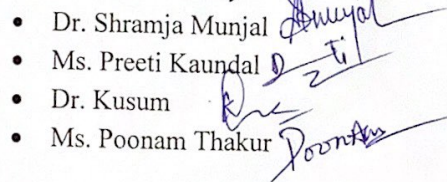 • Dr. Shramja Munjal
• Ms. Preeti Kaundal
• Dr. Kusum
• Ms. Poonam Thakur Poonam